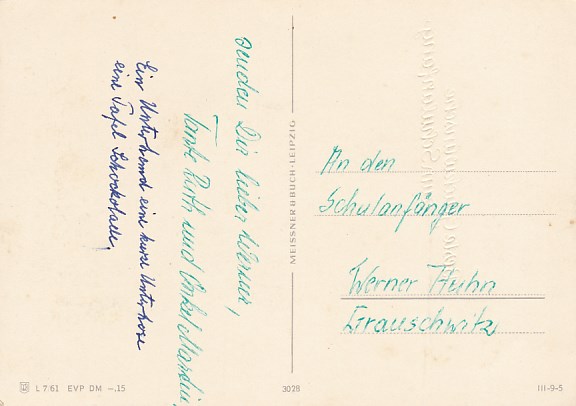 senden Dir lieber Werner,
Tante Ruth und Onkel Martin.
Ein Unterhemd eine kurze Unterhose
eine Tafel Schockolade,
MEISSNER & BUCH · LEIPZIG
An den
Schulanfänger
Werner Huhn
Grauschwitz
L 7/61 EVP DM –,15
3028
III-9-5